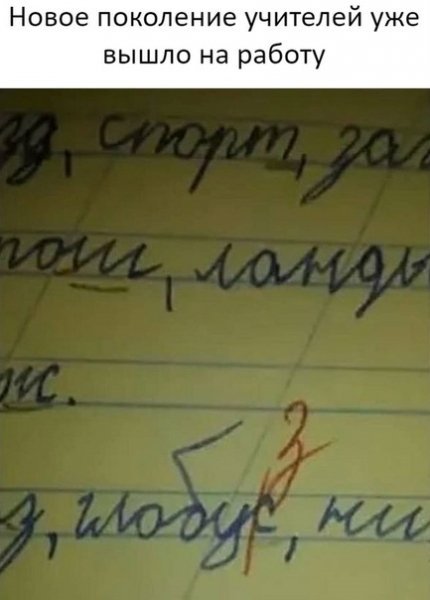 Новое поколение учителей уже
вышло на работу
зд, спорт, за
пош, ланды
ж.
з
з, глобус, ни